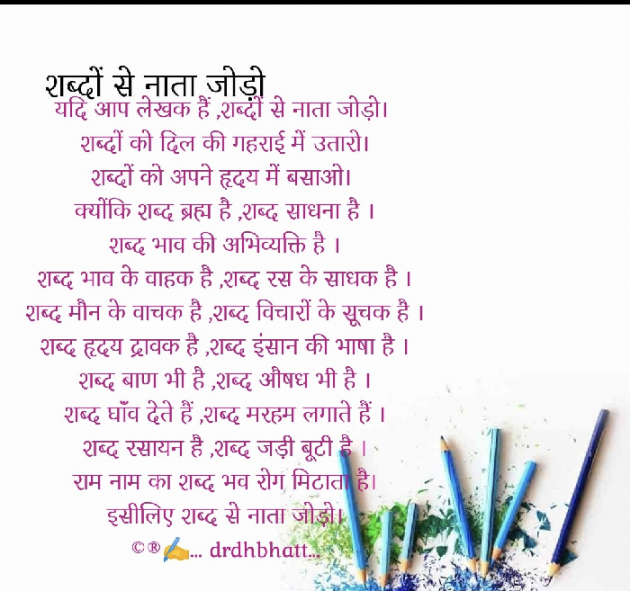 शब्दों से नाता जोड़ो
यदि आप लेखक हैं ,शब्दों से नाता जोड़ो।
शब्दों को दिल की गहराई में उतारो।
शब्दों को अपने हृदय में बसाओ।
क्योंकि शब्द ब्रह्म है ,शब्द साधना है ।
शब्द भाव की अभिव्यक्ति है ।
शब्द भाव के वाहक है ,शब्द रस के साधक है ।
शब्द मौन के वाचक है ,शब्द विचारों के सूचक है ।
शब्द हृदय द्रावक है ,शब्द इंसान की भाषा है ।
शब्द बाण भी है ,शब्द औषध भी है ।
शब्द घाँव देते हैं ,शब्द मरहम लगाते हैं ।
शब्द रसायन है ,शब्द जड़ी बूटी है ।
राम नाम का शब्द भव रोग मिटाता है।
इसीलिए शब्द से नाता जोड़ो।
©®✍️... drdhbhatt...